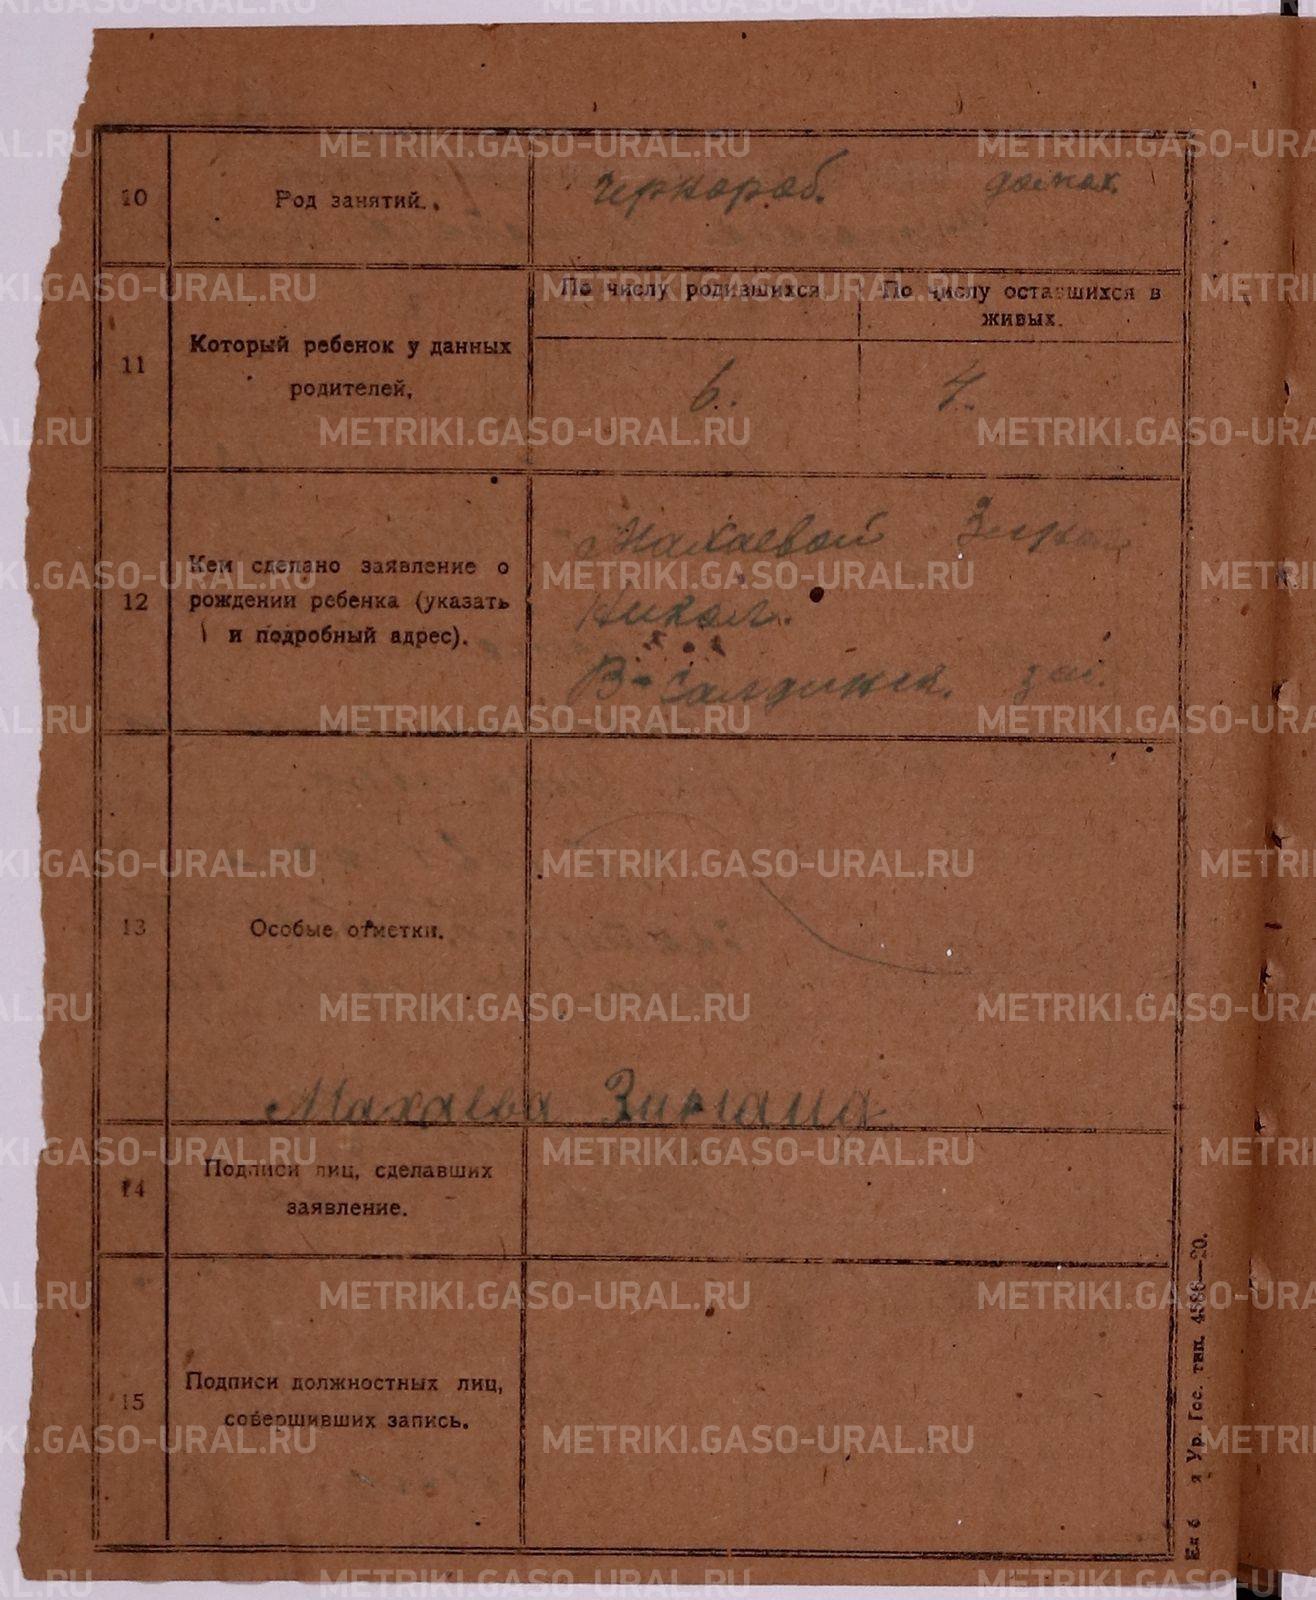 10
Род занятий.
Чернораб. домох.
11
Который ребенок у данных
родителей,
По числу родившихся
По числу оставшихся в
живых.
6. 4.
12
Кем сделано заявление о
рождении ребенка (указать
и подробный адрес).
Махаевой
Никол.
В-Салдинск.
13
Особые отметки.
Махаева
14
Подписи лиц, сделавших
заявление.
15
Подписи должностных лиц,
совершивших запись.
Ур. Гос. тип. 4586—20.
METRIKI.GASO-URAL.RU